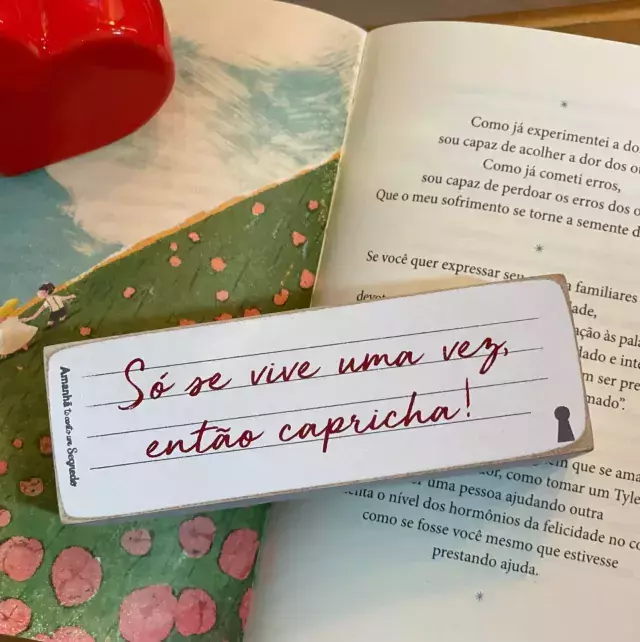 Como já experimentei a do
sou capaz de acolher a dor dos
Como já cometi erros,
sou capaz de perdoar os erros dos
Que o meu sofrimento se torne a semente
Se você quer expressar familiares
Só se vive uma vez,
então capricha!
Amanhã te conto um Segredo
dade,
ação às pala
lado e inte
m ser pre
mado”.
que se ama
como tomar um Tyle
uma pessoa ajudando outra
o nível dos hormônios da felicidade no
como se fosse você mesmo que estivesse
prestando ajuda.